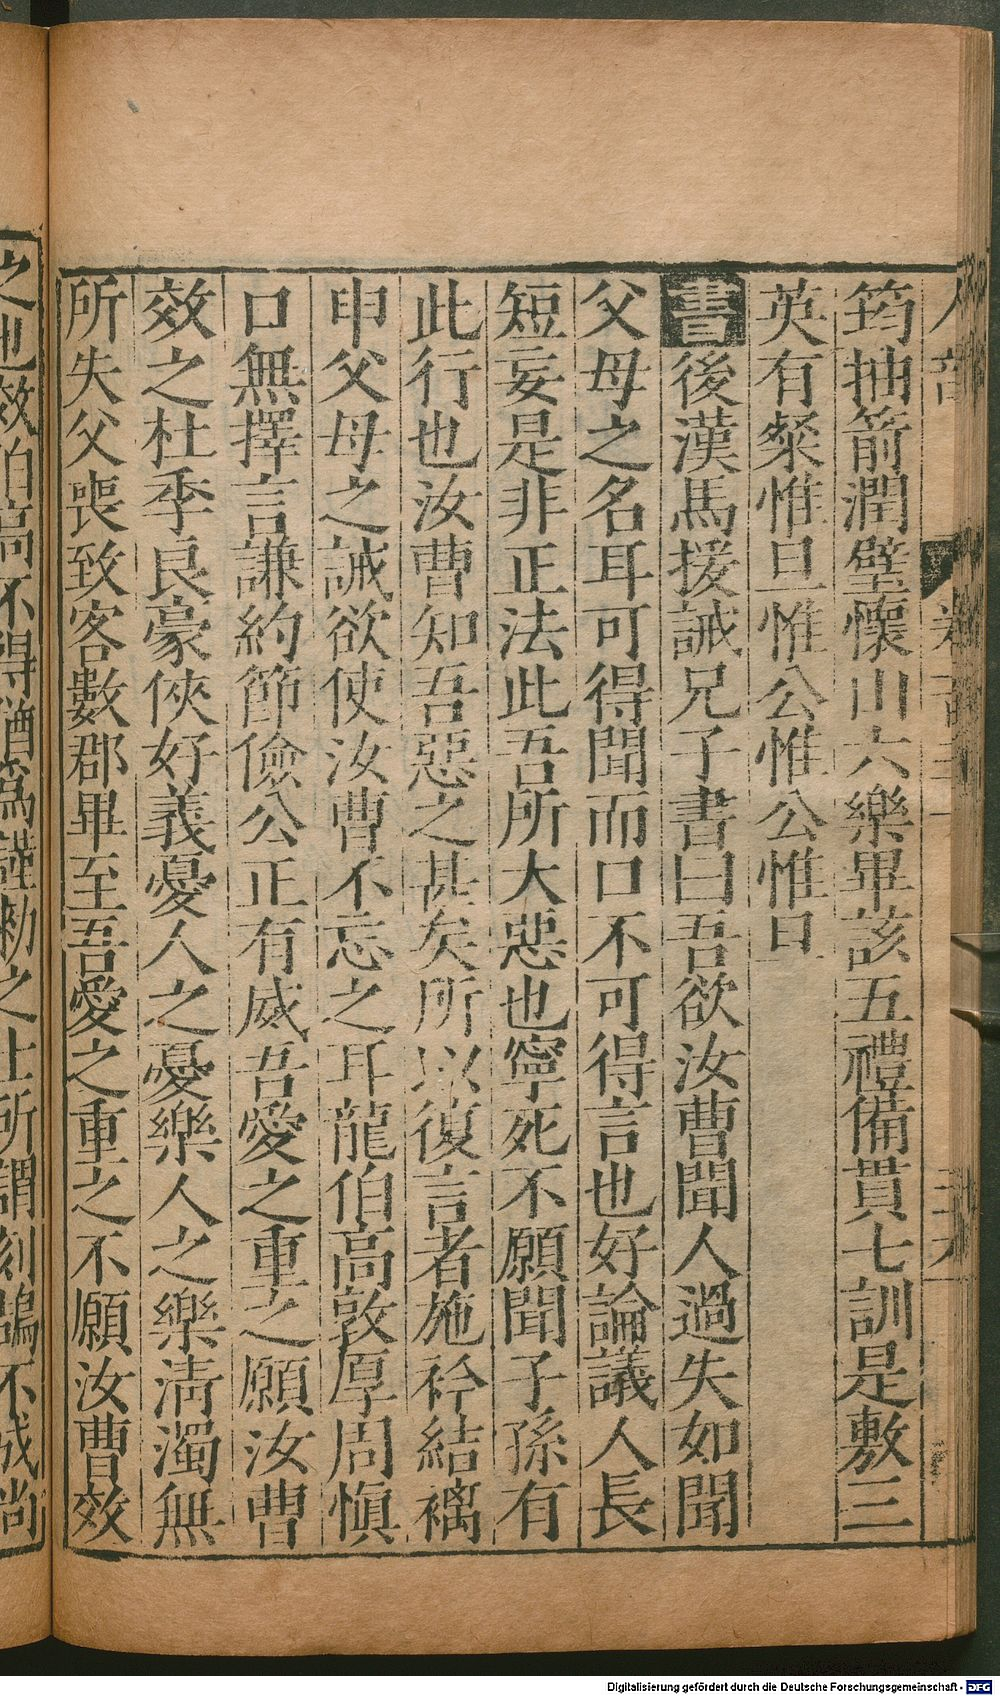 筠抽箭潤壁懷山六樂畢該五禮備貫七訓是敷三
英有粲惟旦惟公惟公惟旦
書後漢馬援誡兄子書曰吾欲汝曹聞人過失如聞
父母之名耳可得聞而口不可得言也好論議人長
短妄是非正法此吾所大惡也寧死不願聞子孫有
此行也汝曹知吾惡之甚矣所以復言者施衿結褵
申父母之誡欲使汝曹不忘之耳龍伯高敦厚周慎
口無擇言謙約節儉公正有威吾愛之重之願汝曹
效之杜季良豪俠好義憂人之憂樂人之樂清濁無
所失父喪致客數郡畢至吾愛之重之不願汝曹效
之也效伯高不得猶為謹勑之士所謂刻鵠不成尚
Digitalisierung gefördert durch die Deutsche Forschungsgemeinschaft - DFG